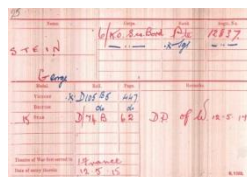 25
Name. Corps. Rank. Regtl. No.
STEIN 6/K.O. Sco. Bord. Pte 12837
George
Medal. Roll. Page. Remarks.
Victory K D/105 B5 447
British do do
15 Star D/74 B 62 DD of W 12-5-17
Theatre of War first served in France
Date of entry therein 12.5.15
K. 1380.